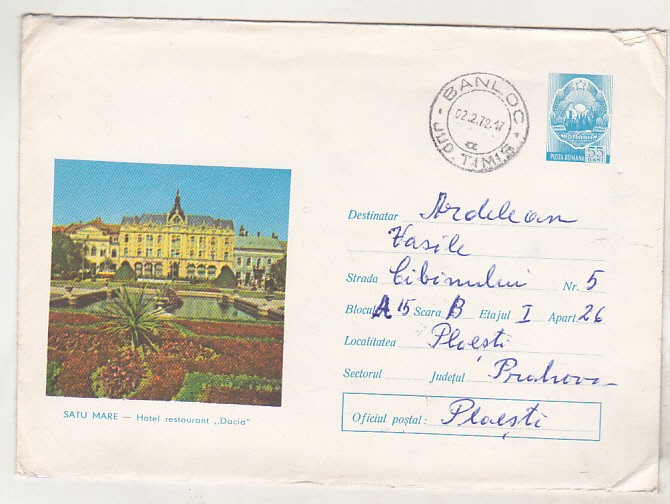 BANLOC
02.2.72.17
JUD. TIMIȘ
POSTA ROMANA 55 BANI
Destinatar Ardelean
Vasile
Strada Cibinului Nr. 5
Blocul A 15 Scara B Etajul I Apart. 26
Localitatea Ploești
Sectorul Județul Prahova
Oficiul poștal: Ploești
SATU MARE — Hotel restaurant „Dacia"